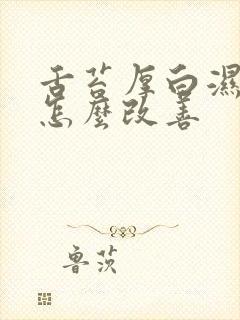 舌苔厚白濕
怎麼改善
魯茨